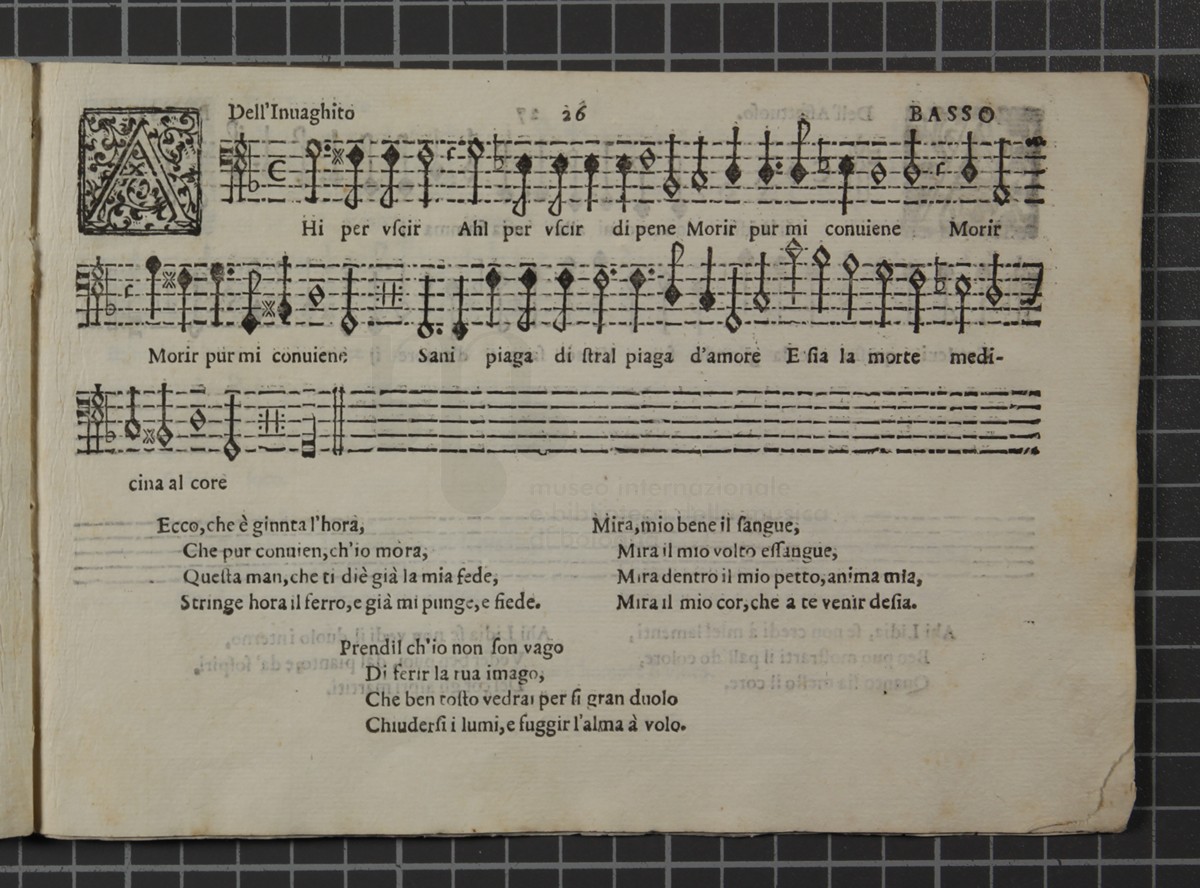 Dell'Inuaghito 26 BASSO
AHi per vſcir Ahi per vſcir di pene Morir pur mi conuiene Morir
Morir pur mi conuiene Sani piaga di ſtral piaga d'amore E ſia la morte medi-
cina al core
museo internazionale
e biblioteca della musica
di bologna
Ecco, che è ginnta l'hora,
Che pur conuien, ch'io mora,
Queſta man, che ti diè già la mia fede,
Stringe hora il ferro, e già mi punge, e fiede.
Mira, mio bene il ſangue,
Mira il mio volto eſſangue,
Mira dentro il mio petto, anima mia,
Mira il mio cor, che a te venir deſia.
Prendil ch'io non ſon vago
Di ferir la tua imago,
Che ben toſto vedrai per ſi gran duolo
Chiuderſi i lumi, e fuggir l'alma à volo.